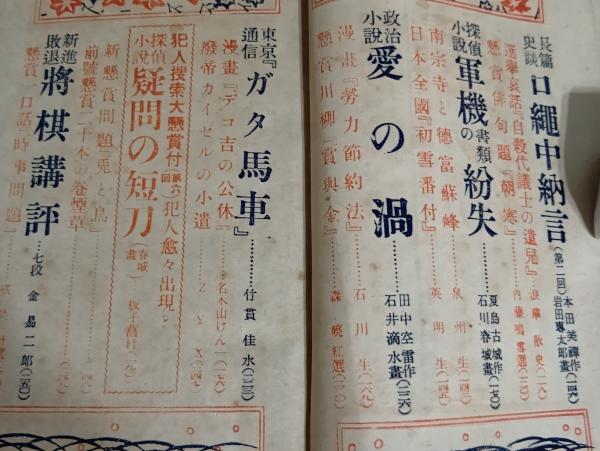 長篇史談 口繩中納言（第二回）本田美禪作 岩田專太郎畫
選擧哀話『自殺代議士の遺兒』 浪
懸賞俳句題『朝寒』 內藤鳴雪選
探偵小說 軍機の書類紛失 夏島古城作 石川春城畫（一七）
南宗寺と德富蘇峰 泉州生
日本全國『初雪番付』 英明生
政治小說 愛の渦 田中空雷作 石井滴水畫
漫畫『勞力節約法』 石川生
懸賞川柳『賞與金』 森曉紅選
東京通信『ガタ馬車』 竹貫佳水
漫畫『デコ吉の公休』 名木山けん一
廢帝カイゼルの小遣 ZYX
犯人搜索大懸賞付 第六回 犯人愈々出現
探偵小說 疑問の短刀（春城畫）
新懸賞問題『兎と鳥』
前號懸賞二十本の卷煙草
新進敗退 將棋講評 七段 金易二郎
懸賞 口話『時事問題』